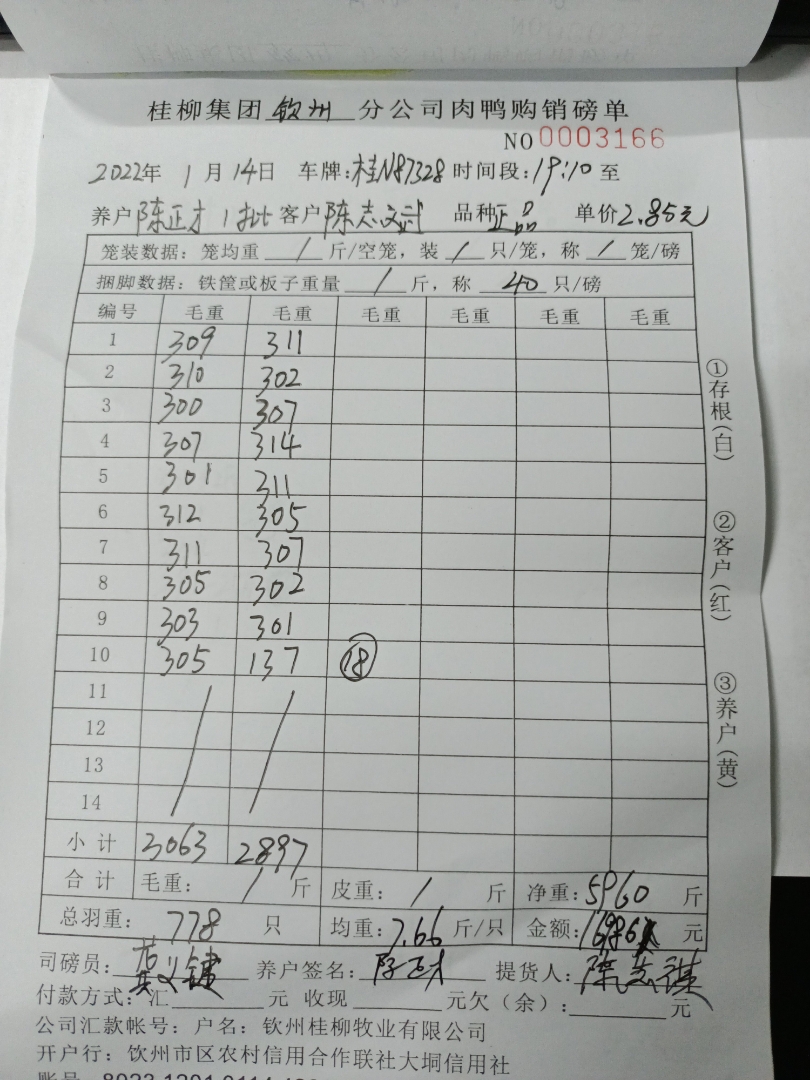 桂柳集团 钦州 分公司肉鸭购销磅单
NO 0003166
2022年 1月 14日 车牌:桂N87328 时间段:19:10 至
养户 陈正才 1批 客户 陈志武 品种 正品 单价 2.85元
笼装数据: 笼均重 / 斤/空笼, 装 / 只/笼, 称 / 笼/磅
捆脚数据: 铁筐或板子重量 / 斤, 称 40 只/磅
编号 毛重 毛重 毛重 毛重 毛重 毛重
1 309 311
2 310 302
3 300 307
4 307 314
5 301 311
6 312 305
7 311 307
8 305 302
9 303 301
10 305 137 18
11 / /
12
13
14
小计 3063 2897
合计 毛重: / 斤 皮重: / 斤 净重: 5960 斤
总羽重: 778 只 均重: 7.66 斤/只 金额: 元
司磅员: 养户签名: 陈正才 提货人:
付款方式: 汇 元 收现 元欠(余): 元
公司汇款帐号: 户名: 钦州桂柳牧业有限公司
开户行: 钦州市区农村信用合作联社大垌信用社
①存根(白)
②客户(红)
③养户(黄)